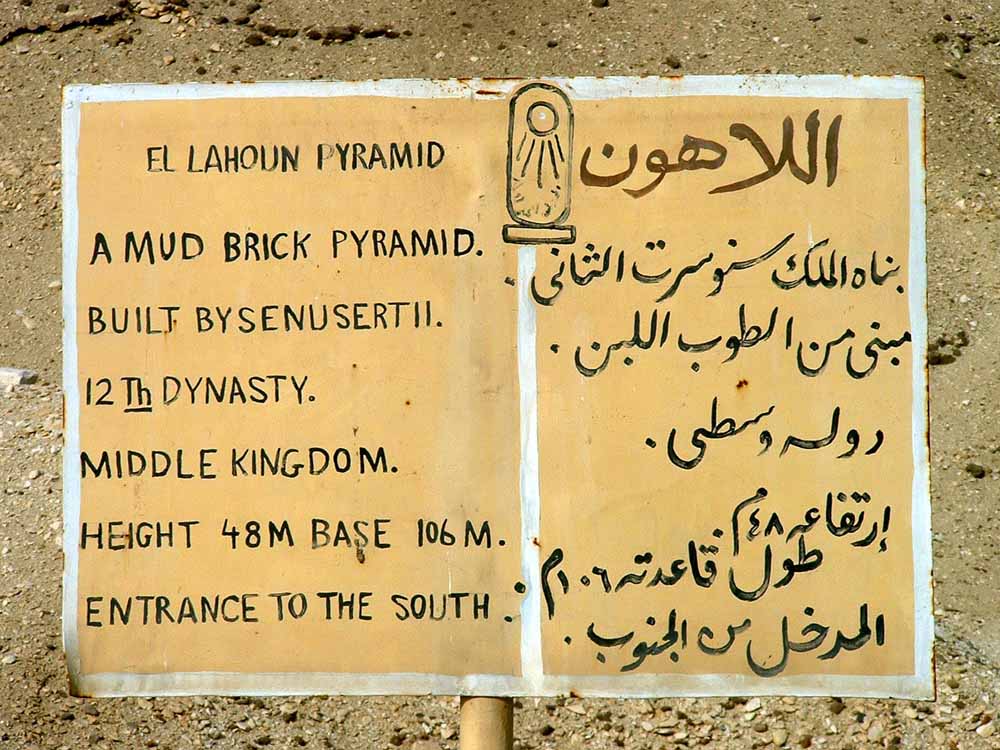 EL LAHOUN PYRAMID
A MUD BRICK PYRAMID.
BUILT BYSENUSERTII.
12 Th DYNASTY.
MIDDLE KINGDOM.
HEIGHT 48M BASE 106 M.
ENTRANCE TO THE SOUTH .
اللاهون
بناه الملك سنوسرت الثانى .
مبنى من الطوب اللبن .
دوله وسطى .
إرتفاعه ٤٨ م .
طول قاعدته ١٠٦ م .
المدخل من الجنوب .